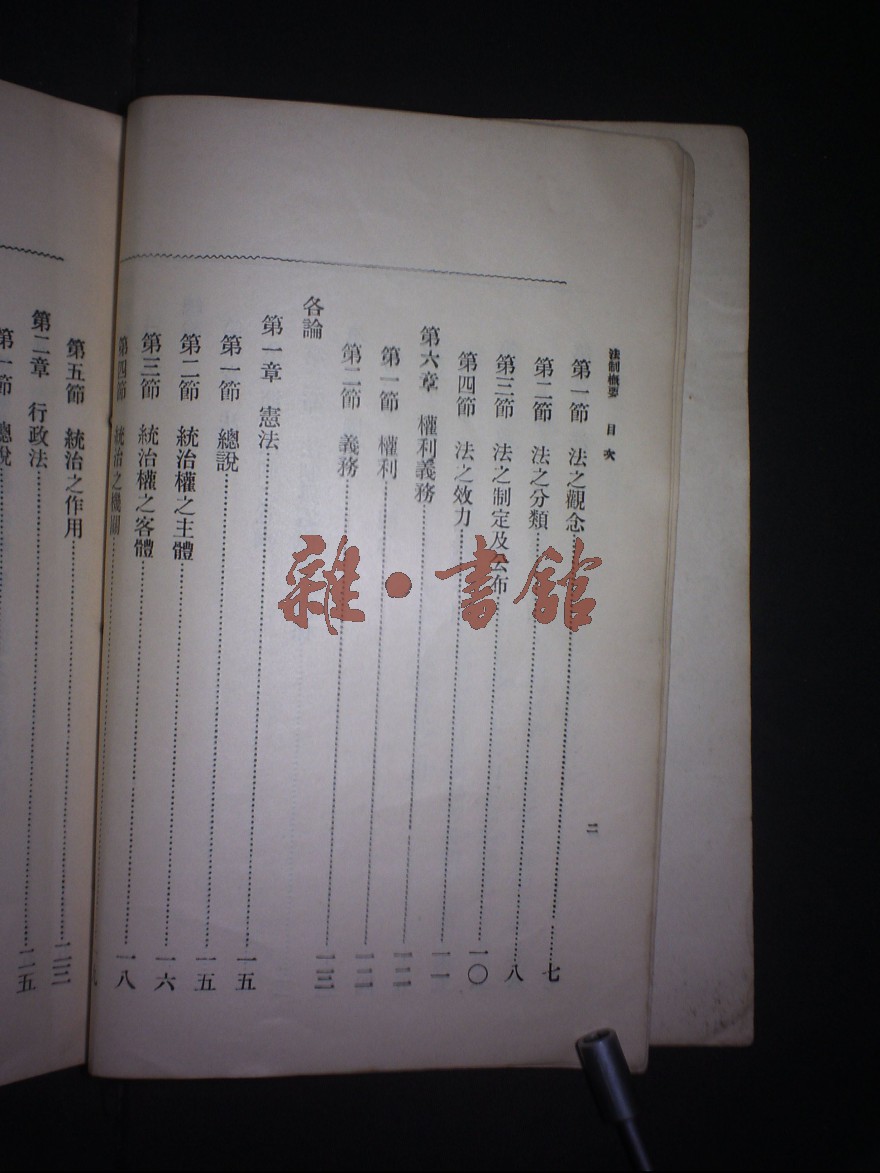 法制概要 目次 二
第一節 法之觀念……七
第二節 法之分類……八
第三節 法之制定及公布……一〇
第四節 法之效力……一一
第六章 權利義務……一二
第一節 權利……一二
第二節 義務……一三
各論
第一章 憲法……一五
第一節 總說……一五
第二節 統治權之主體……一六
第三節 統治權之客體……一八
第四節 統治之機關……
第五節 統治之作用……二三
第二章 行政法……二五
第一節 總說……
雜·書館